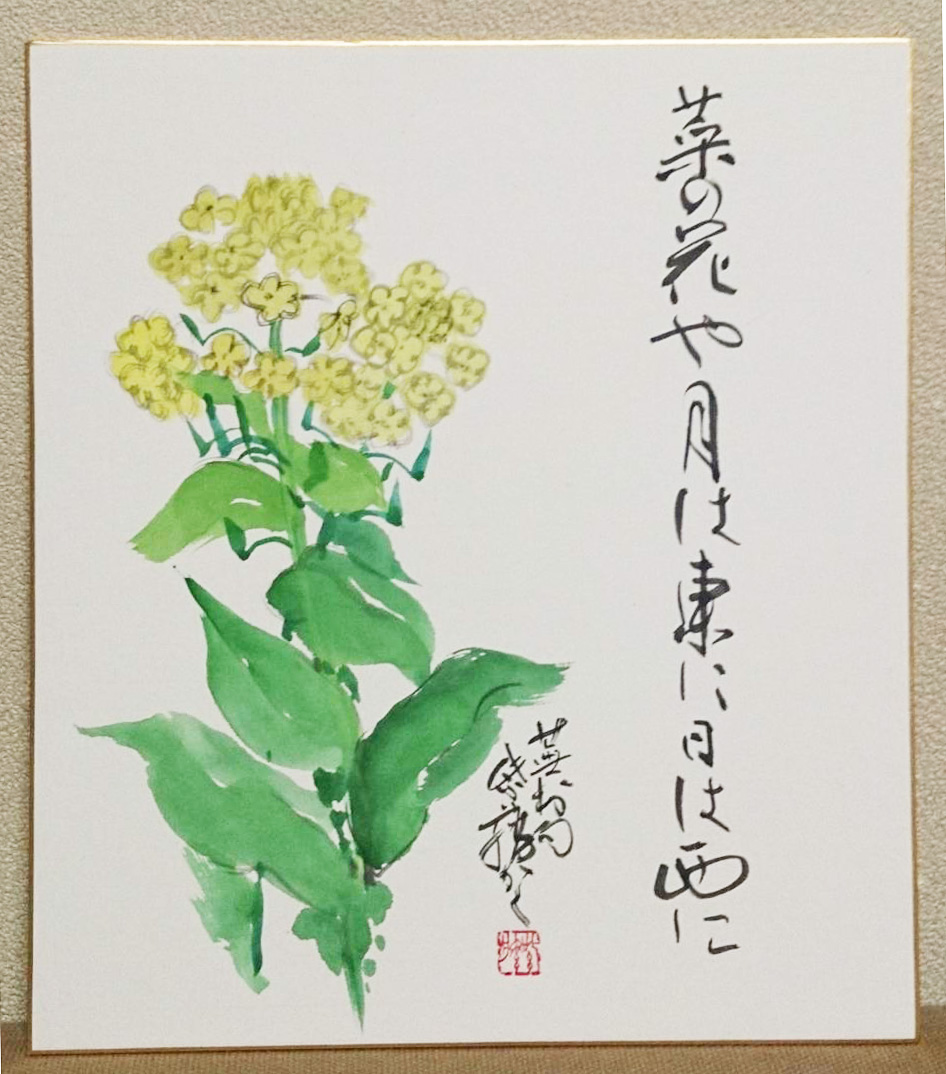 菜の花や月は東に日は西に
蕪村句
かく